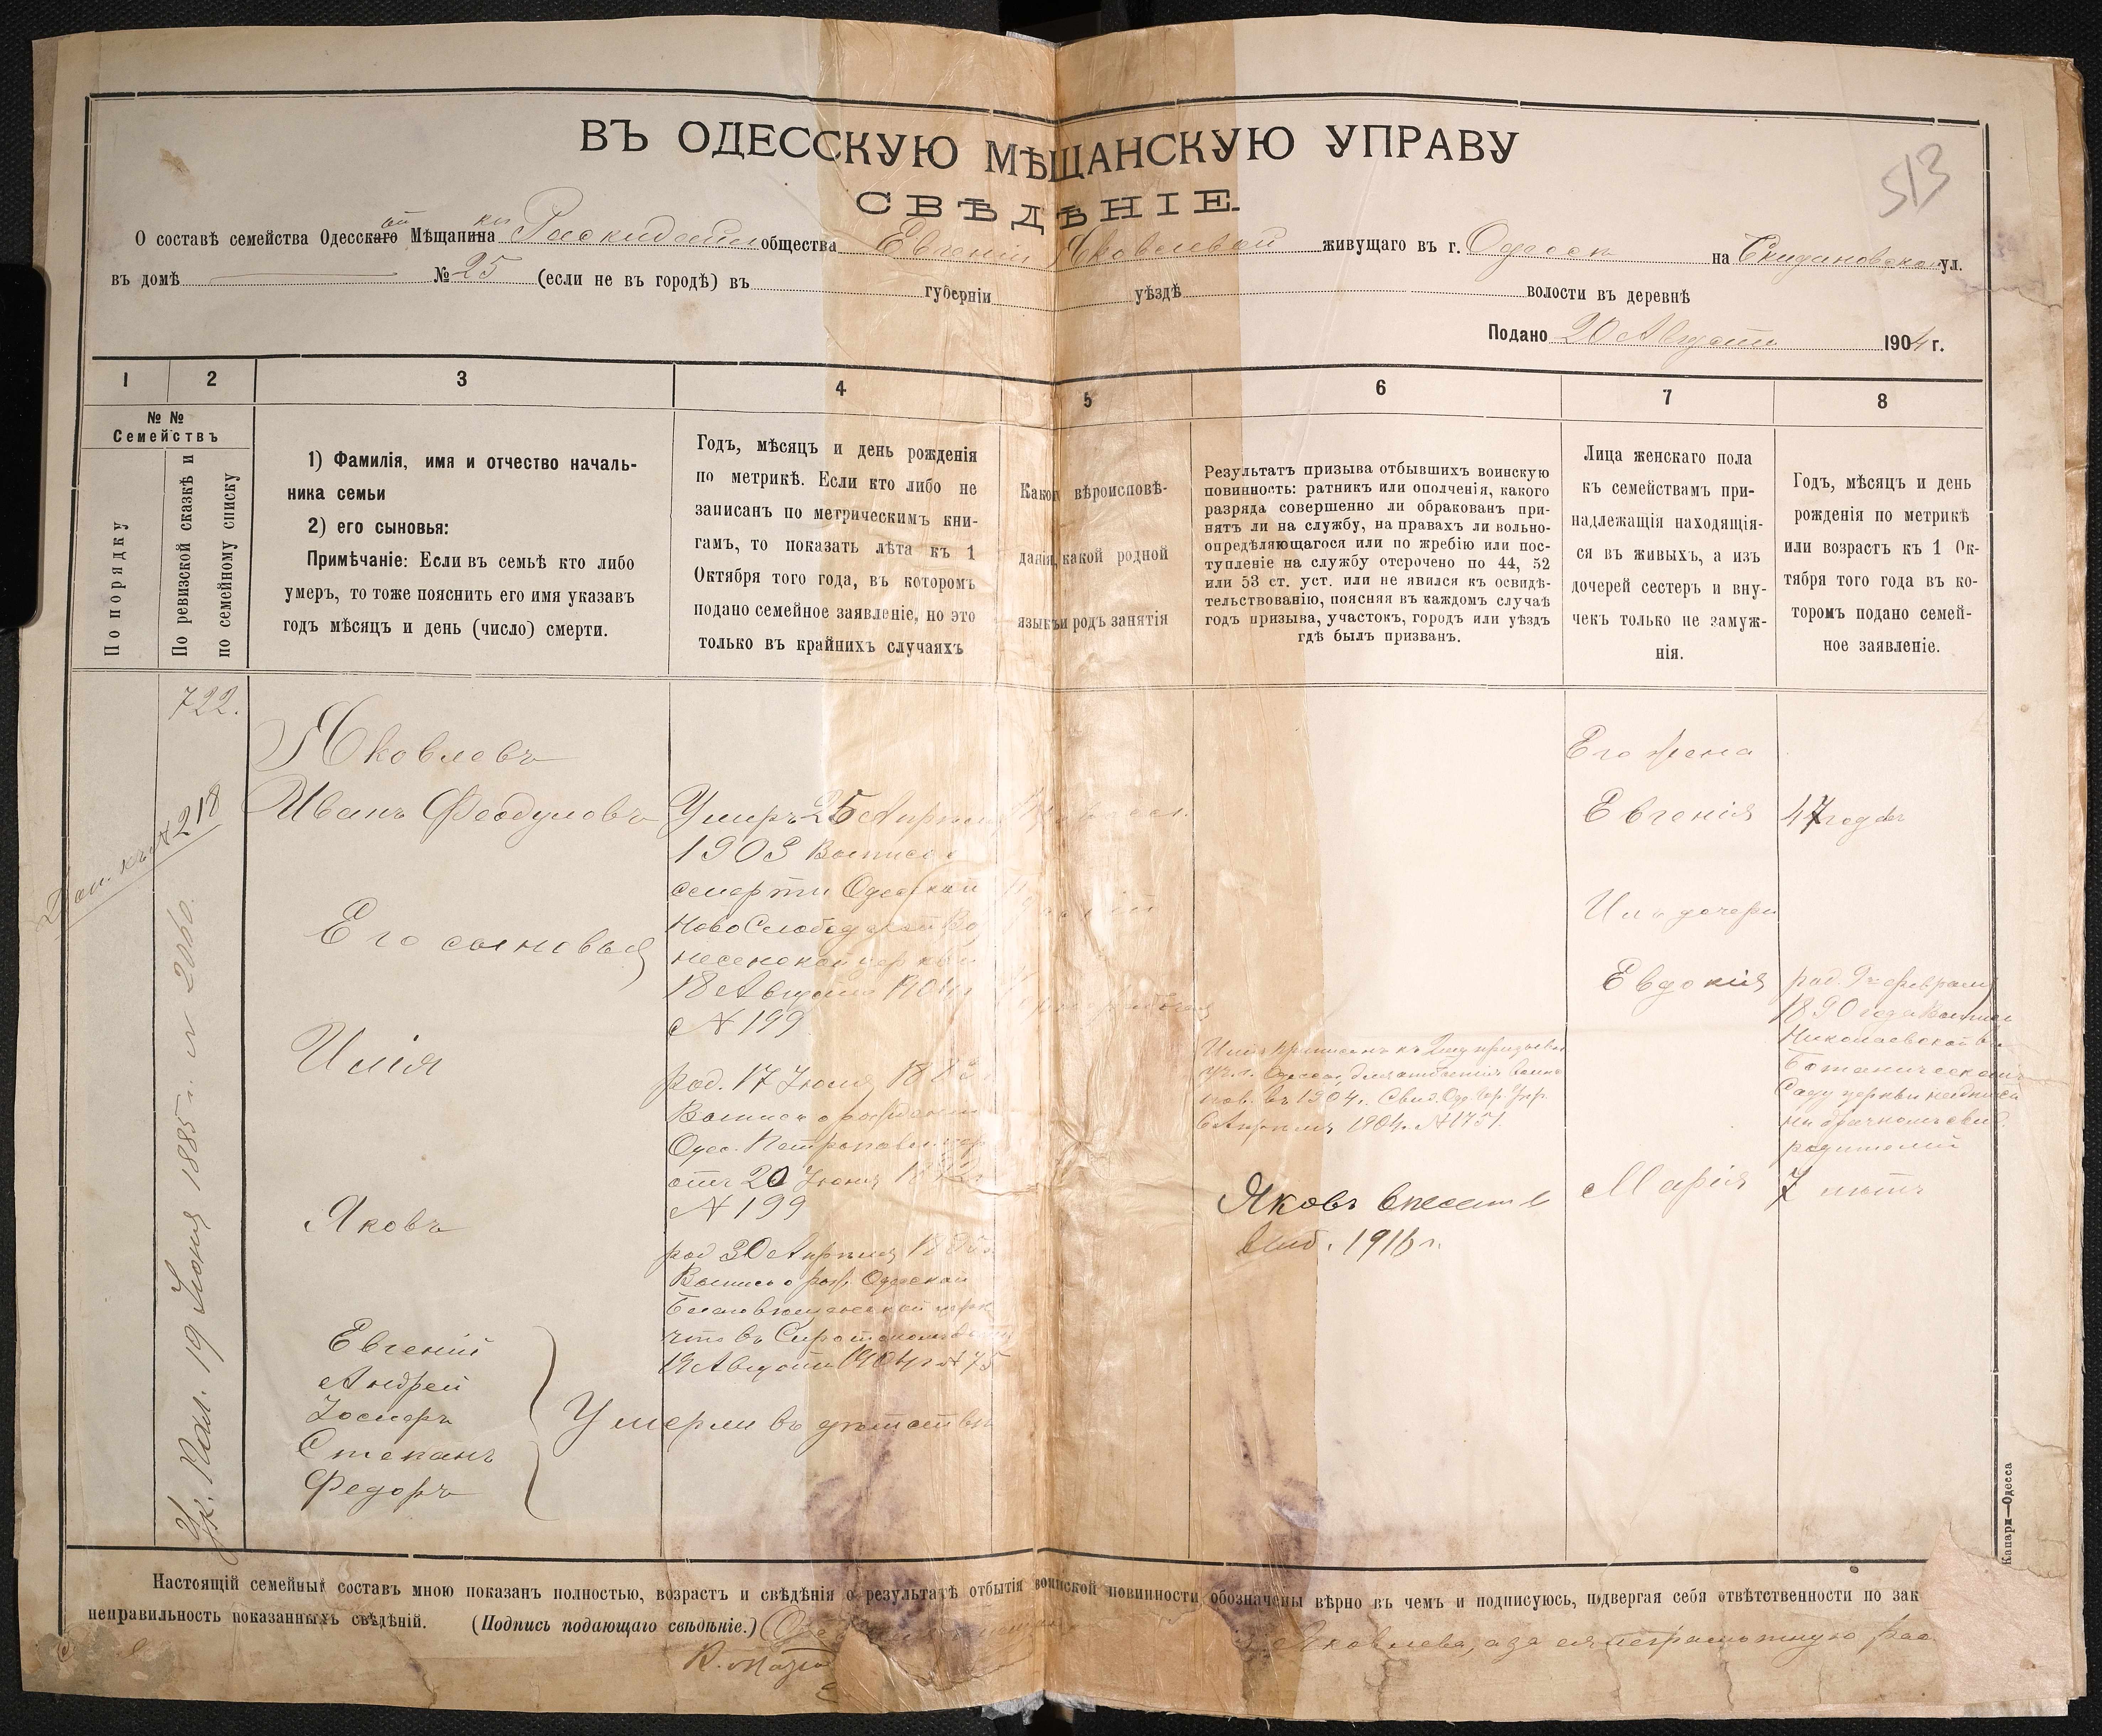 513
ВЪ ОДЕССКУЮ МѢЩАНСКУЮ УПРАВУ
СВѢДѢНІЕ
О составѣ семейства Одесскаго Мѣщанина общества Евгеніи Яковлевой живущаго въ г. Одессѣ на ул.
въ домѣ № 25 (если не въ городѣ) въ губерніи уѣздѣ волости въ деревнѣ
Подано 20 Августа 1904 г.
1 2 3 4 5 6 7 8
№ №
Семействъ
По порядку
По ревизской сказкѣ и
по семейному списку
1) Фамилія, имя и отчество началь-
ника семьи
2) его сыновья:
Примѣчаніе: Если въ семьѣ кто либо
умеръ, то тоже пояснить его имя указавъ
годъ мѣсяцъ и день (число) смерти.
Годъ, мѣсяцъ и день рожденія
по метрикѣ. Если кто либо не
записанъ по метрическимъ кни-
гамъ, то показать лѣта къ 1
Октября того года, въ которомъ
подано семейное заявленіе, но это
только въ крайнихъ случаяхъ
Какой вѣроисповѣ-
данія, какой родной
языкъ и родъ занятія
Результатъ призыва отбывшихъ воинскую
повинность: ратникъ или ополченія, какого
разряда совершенно ли обракованъ при-
нятъ ли на службу, на правахъ ли вольно-
опредѣляющагося или по жребію или пос-
тупленіе на службу отсрочено по 44, 52
или 53 ст. уст. или не явился къ освидѣ-
тельствованію, поясняя въ каждомъ случаѣ
годъ призыва, участокъ, городъ или уѣздъ
гдѣ былъ призванъ.
Лица женскаго пола
къ семействамъ при-
надлежащія находящія-
ся въ живыхъ, а изъ
дочерей сестеръ и вну-
чекъ только не замуж-
нія.
Годъ, мѣсяцъ и день
рожденія по метрикѣ
или возрастъ къ 1 Ок-
тября того года въ ко-
торомъ подано семей-
ное заявленіе.
722.
Доп. къ № 218
Ук. Каз. 19 Іюня 1885 г. № 2060.
Яковлевъ
Иванъ Феодуловъ
Его сыновья
Илія
Яковъ
Евгеній
Андрей
Іосифъ
Степанъ
Федоръ
Умерли въ дѣтствѣ
Умеръ 25 Апрѣля
1903 Выпись о
смерти Одесской
Ново Слободской Воз
несенской церкви
18 Августа 1904 г
№ 199
род. 17 Іюля
Выпись о рожденіи
Одес. Петропавл. цер
отъ 20 Іюня
№ 199
род 30 Апрѣля
Выпись о рож. Одесской
Благовѣщенской церк
что въ Сиротском
19 Августа 1904 г № 75
Илія приписанъ къ призывн
уч. г. Одессы, для отбытія воинс
пов. въ 1904 г. Свид. Од. Гор. Упр.
6 Апрѣля 1904 г. № 1751.
Яковъ внесенъ в
1916 г.
Его жена
Евгенія
47 годъ
Ихъ дочери
Евдокія
род. 9 Февраля
1890 года Выпись
Николаевской въ
Ботаническомъ
Саду церкви надписи
на брачномъ свид.
родителей
Марія
7 лѣтъ
Настоящій семейный составъ мною показанъ полностью, возрастъ и свѣдѣнія о результатѣ отбытія воинской повинности обозначены вѣрно въ чемъ и подписуюсь, подвергая себя отвѣтственности по зак
неправильность показанныхъ свѣдѣній. (Подпись подающаго свѣдѣніе.)
Яковлева, а за ея неграмотную рос
Капари—Одесса